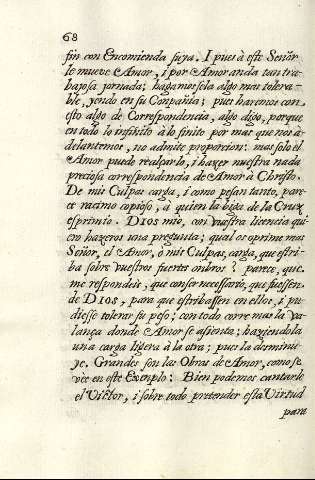 68
fin con Encomienda suya. I pues à este Señor
le mueve Amor, i por Amor anda tan tra-
bajosa jornada; hagamosela algo mas tolera-
ble, yendo en su Conpañia; pues haremos con
esto algo de Correspondencia, algo digo, porque
en todo lo infinito à lo finito por mas que nos a-
delantemos, no admite proporcion: mas solo el
Amor puede realçarlo, i hazer nuestra nada
preciosa correspondencia de Amor à Christo.
De mis Culpas carga, i como pesan tanto, pare-
ce racimo copioso, a quien la biga de la Cruz
esprimio. DIOS mio, con vuestra licencia qui-
ero hazeros una pregunta; qual os oprime mas
Señor, el Amor, ò mis Culpas, carga, que estri-
ba sobre vuestros fuertes onbros? parece, que
me respondeis, que con ser necessario, que fuessen
de DIOS, para que estribassen en ellos, i pu-
diesse tolerar su peso; con todo corre mas la va-
lança donde Amor se assienta; haziendola
una carga ligera à la otra; pues la desminu-
ye. Grandes son las Obras de Amor, como se
vèe en este Exenplo: Bien podemos cantarle
el Victor, i sobre todo pretender esta Virtud
para